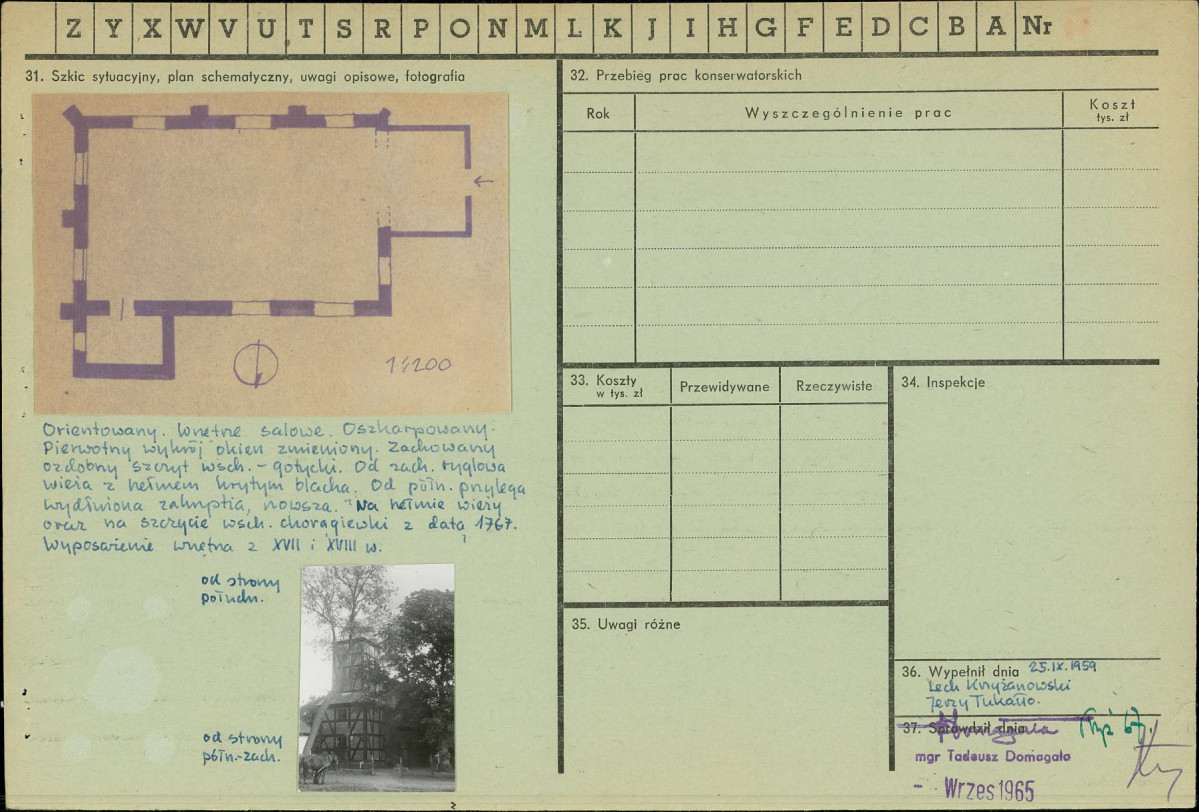 Z Y X W V U T S R P O N M L K J I H G F E D C B A Nr
31. Szkic sytuacyjny, plan schematyczny, uwagi opisowe, fotografia
1:200
Orientowany. Wnętrze salowe. Oszkarpowany.
Pierwotny wykrój okien zmieniony. Zachowany
ozdobny szczyt wsch. - gotycki. Od zach. ryglowa
wieża z hełmem krytym blachą. Od półn. przylega
wydłużona zakrystia, nowsza. Na hełmie wieży
oraz na szczycie wsch. chorągiewki z datą 1767.
Wyposażenie wnętrza z XVII i XVIII w.
od strony
połudn.
od strony
półn.-zach.
32. Przebieg prac konserwatorskich
Rok
Wyszczególnienie prac
Koszt
tys. zł
33. Koszty
w tys. zł
Przewidywane
Rzeczywiste
34. Inspekcje
35. Uwagi różne
36. Wypełnił dnia 25.IX.1959
Lech Krzyżanowski
Jerzy Tukałło.
37. Sprawdził dnia
mgr Tadeusz Domagała
- Wrzes 1965